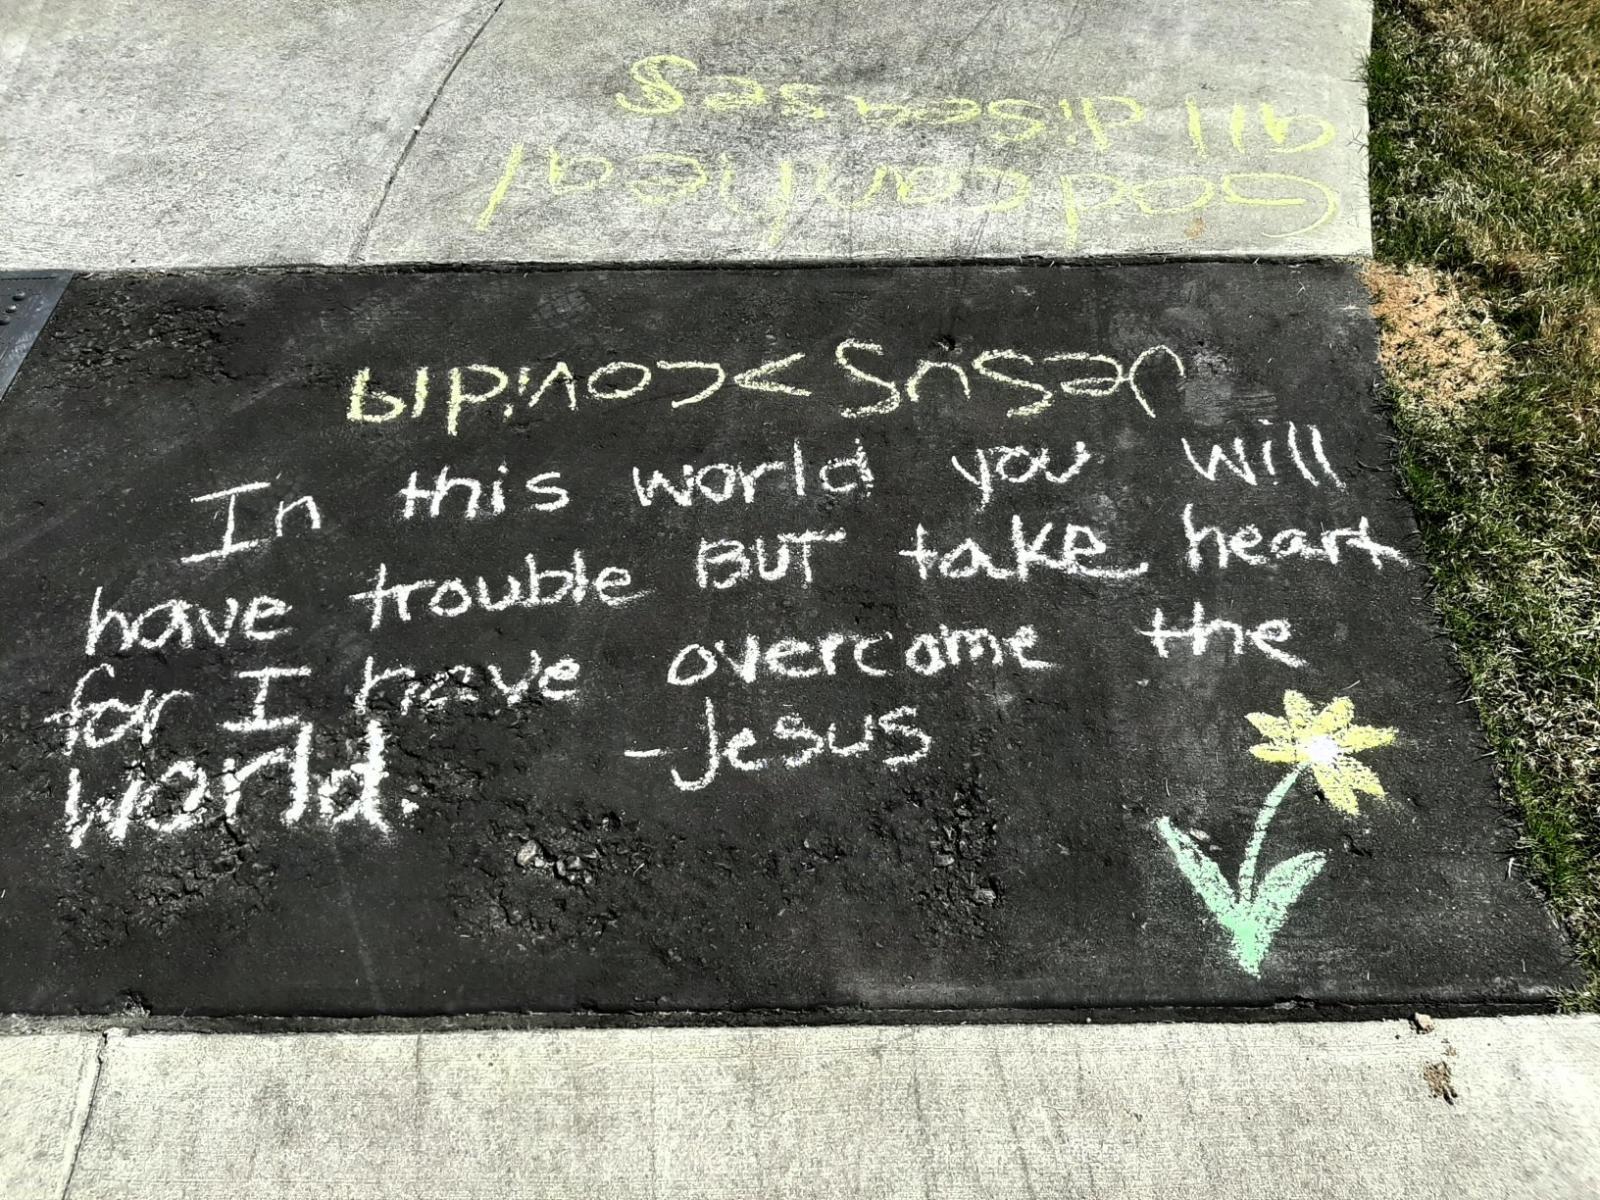 God can heal
all diseases
Jesus>covid19
In this world you will
have trouble BUT take heart
for I have overcome the
world. -Jesus